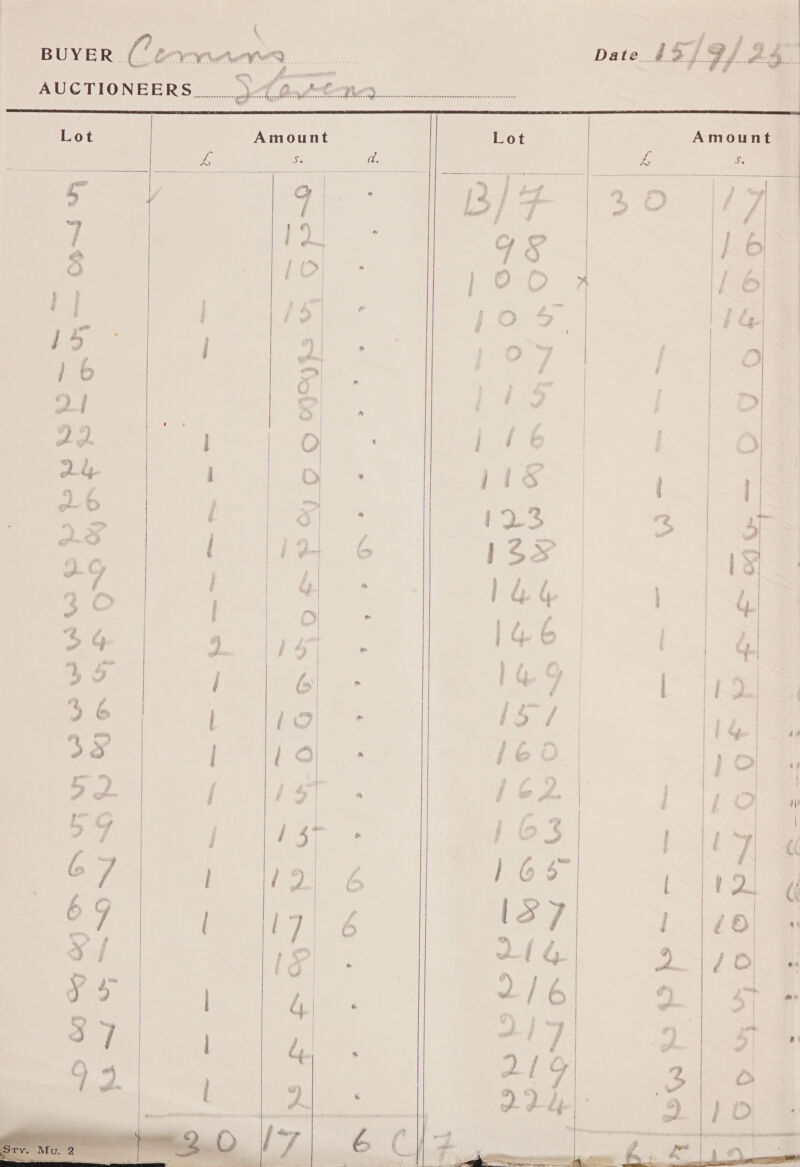 BUYER
AUCTIONEERS
Date 15/9/25
Lot Amount Lot Amount
£ s. d. £ s.
5 9 -
7 12 -
8 10 -
11 1 15 -
15 1 2 -
16 8 -
21 8 -
22 1 0 -
24 1 0 -
26 1 8 -
28 1 12 6
29 1 4 -
30 1 0 -
34 2 15 -
35 1 6 -
36 1 10 -
38 1 10 -
52 1 15 -
59 1 15 -
67 1 12 6
69 1 17 6
81 18 -
85 1 4 -
87 1 4 -
92 1 2 -
30 17 6 C/7
B/7 30 17
98 16
100 x 16
105 14
107 1 0
115 1 0
116 1 0
118 1 1
123 3 5
138 18
144 1 4
146 1 4
149 1 12
157 14
160 10
162 1 10
163 1 17
165 1 12
187 1 10
214 2 10
216 2 5
217 2 5
219 3 0
224 2 10
Srv. Mu. 2